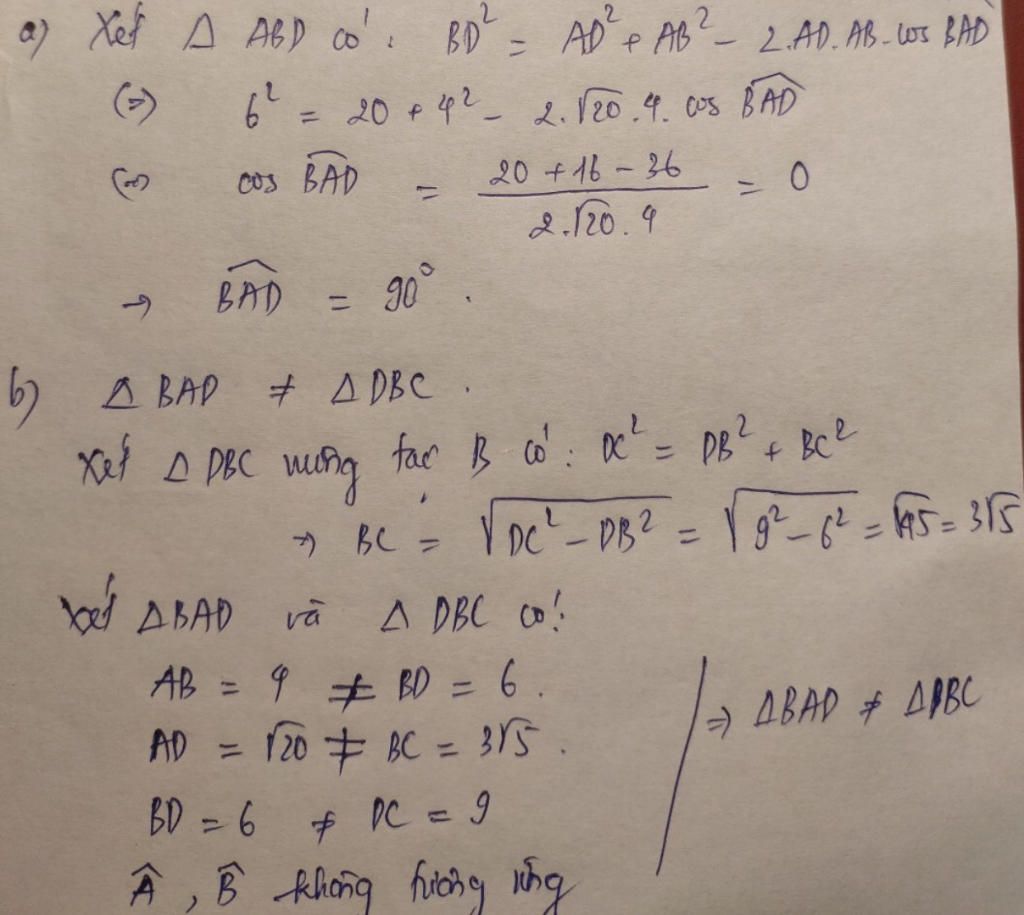 a) Xét Δ ABD có: BD² = AD² + AB² - 2.AD.AB.cos BAD
(=) 6² = 20 + 4² - 2.√20.4. cos BAD
(=) cos BAD = (20 + 16 - 36) / (2.√20.4) = 0
→ BAD = 90°.
b) Δ BAD ≠ Δ DBC.
Xét Δ DBC vuông tại B có: DC² = DB² + BC²
→ BC = √(DC² - DB²) = √(9² - 6²) = √45 = 3√5
Xét ΔBAD và Δ DBC có:
AB = 4 ≠ BD = 6.
AD = √20 ≠ BC = 3√5.
BD = 6 ≠ DC = 9
Â, B̂ không tương ứng
⇒ ΔBAD ≠ ΔDBC